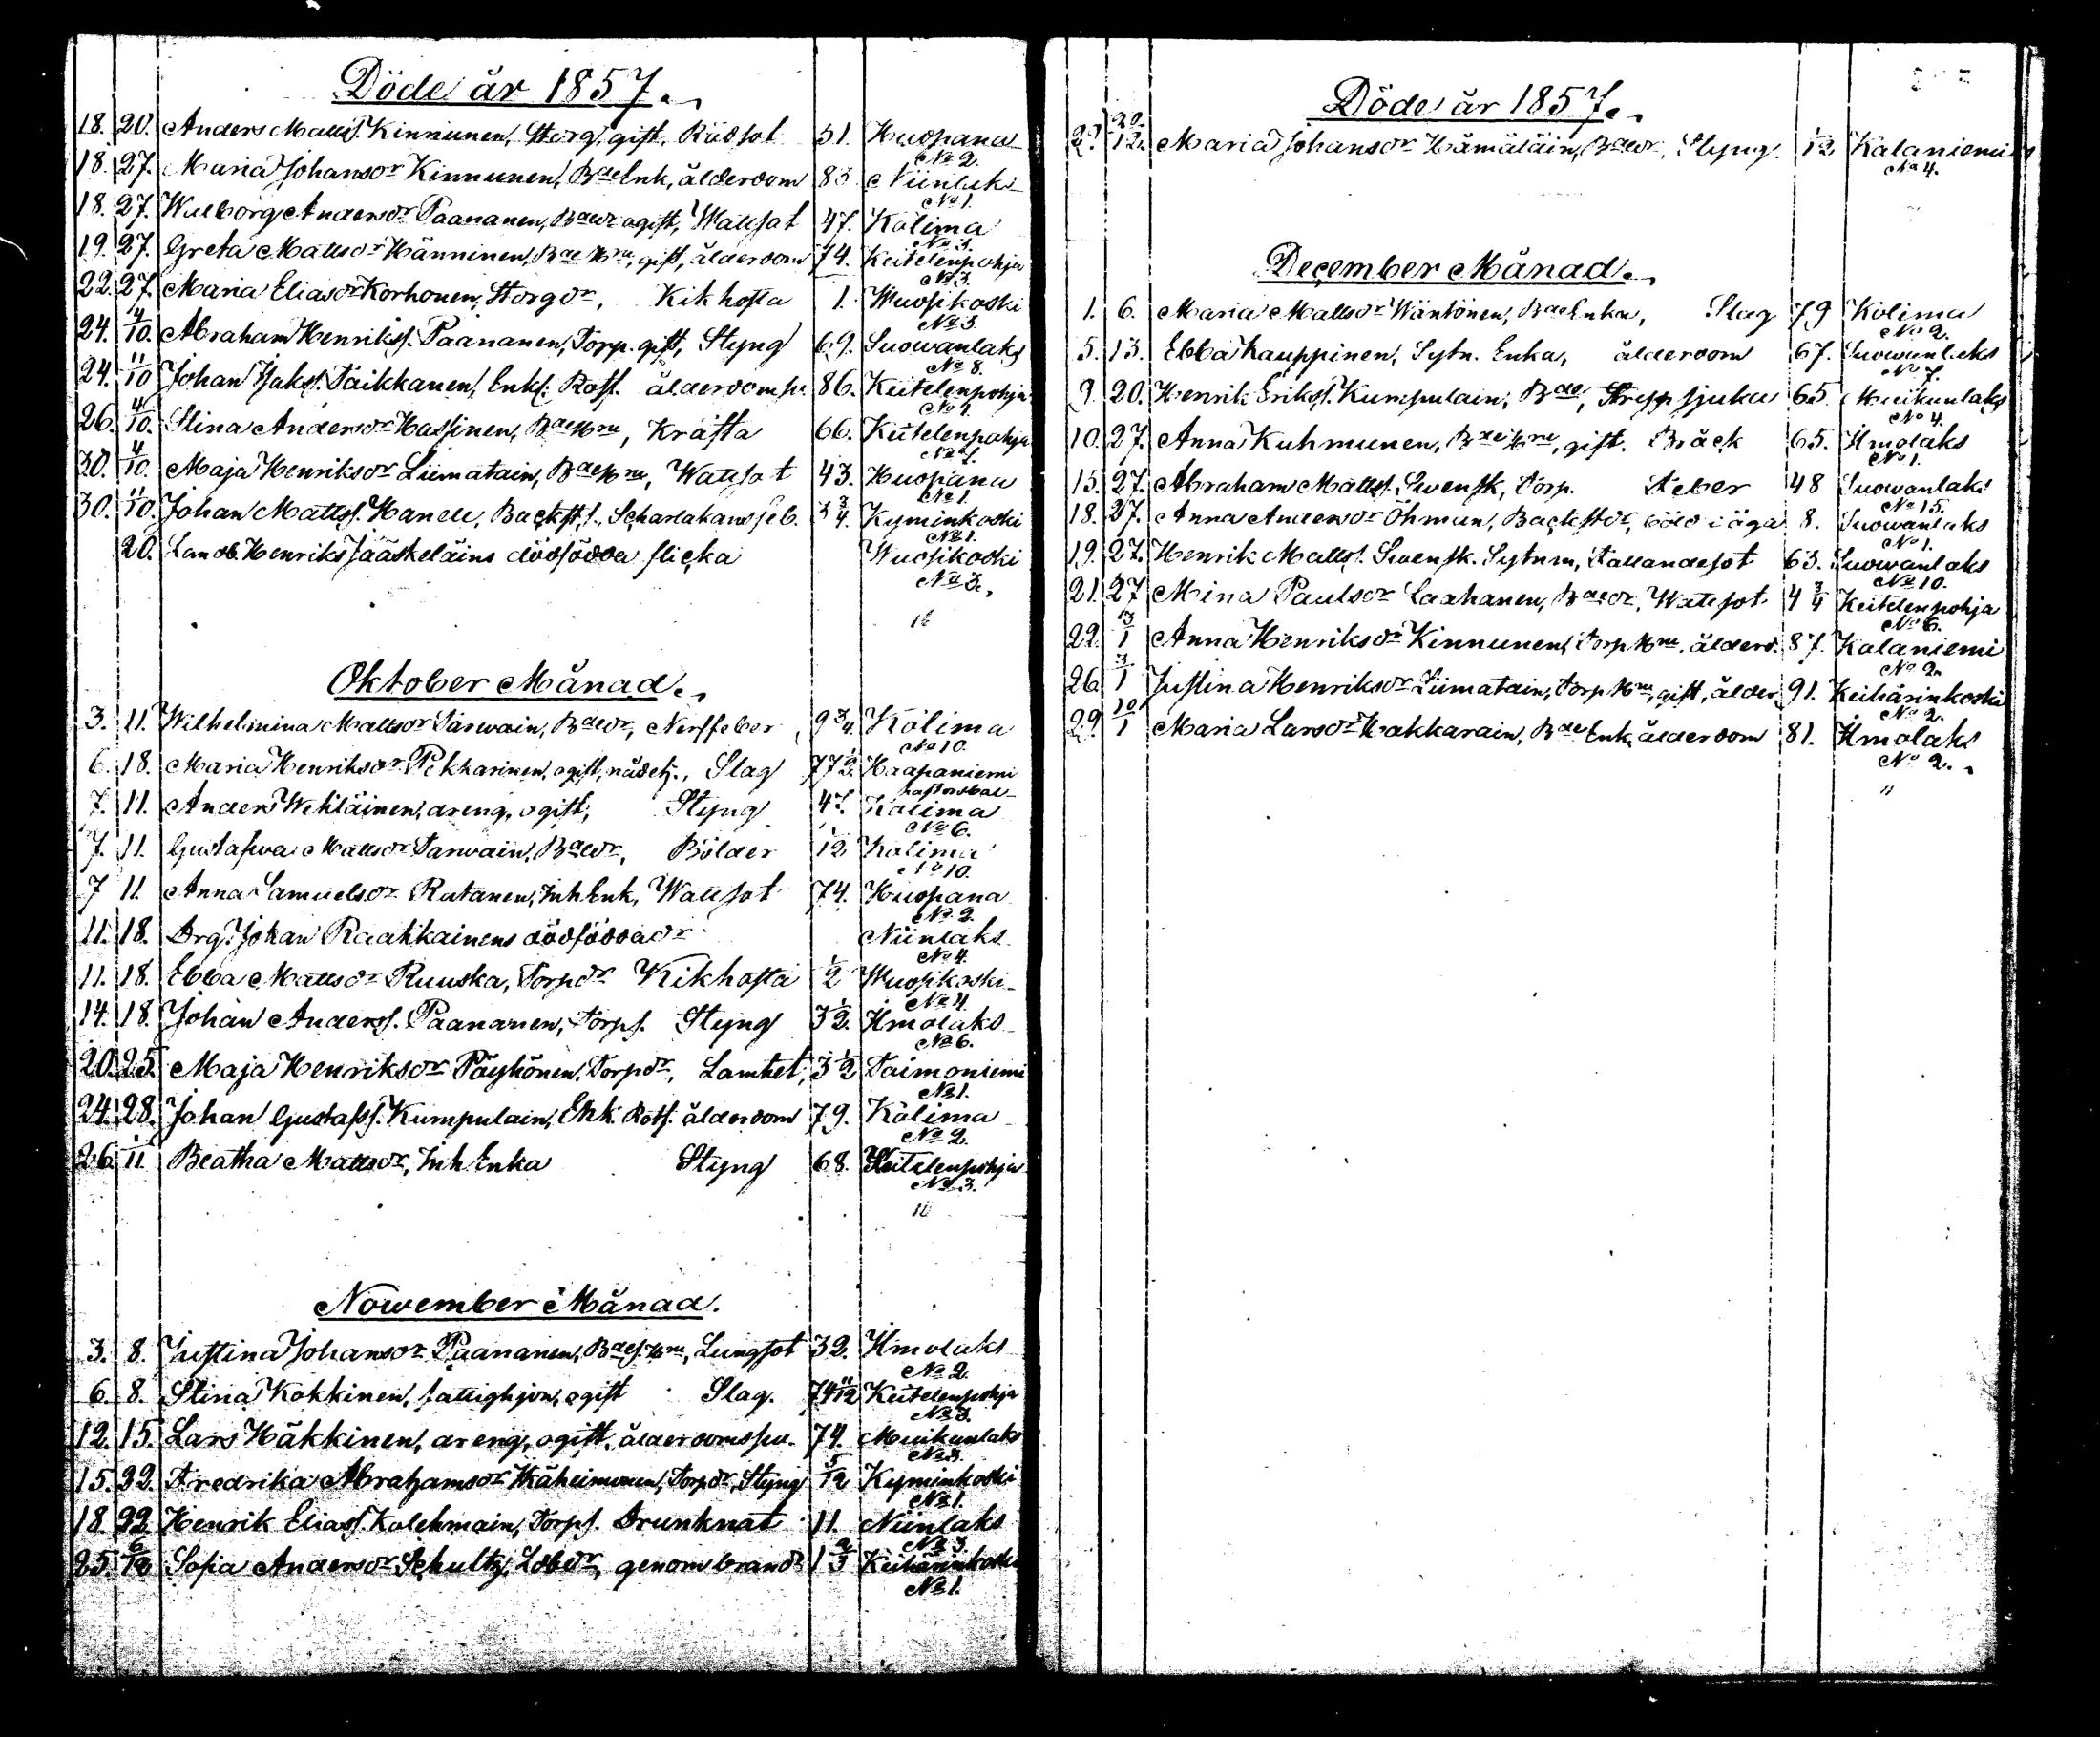 Döde år 1857.
18. 20. Anders Matts. Kinnunen, Storg, gift, Rödsot 51. Huopana
No 2.
18. 27. Maria Johansdr Kinnunen, Bde Enk, ålderdom 83 Niinilaks
No 1.
18. 27. Walborg Andersdr Paananen, Bdedr ogift, Wattsot 47. Kolima
No 3.
19. 27. Greta Mattsdr Hänninen, Bde Hru, gift, ålderdom 74. Keitelenpohja
No 3.
22. 27. Maria Eliasdr Korhonen, Storgdr, Kikhosta 1. Wuosikoski
No 3.
24. 4/10. Abraham Henrikss. Paananen, Torp. gift, Styng 69. Suowanlaks
No 8.
24. 11/10 Johan Jakss. Taikkanen, Enkl. Rotf. ålderdomsw. 86. Keitelenpohja
No 4.
26. 4/10. Stina Andersdr Hassinen, Bde Hru, Kräfta 66. Keitelenpohja
No 1.
30. 4/10. Maja Henriksdr Liimatain, Bde Hru, Wattsot 43. Huopana
No 1.
30. 11/10. Johan Mattss. Hanell, Backsts., Scharlakansfeb. 3 3/4. Kyminkoski
No 1.
20. Landb. Henriks Jääskeläins dödfödda flicka Wuosikoski
No 3.
Oktober Månad.
3. 11. Wilhelmina Mattsdr Tarwain, Bdedr, Nerffeber 9 3/4. Kolima
No 10.
6. 18. Maria Henriksdr Pekkarinen, ogift, nådehj., Slag 77 1/2. Haapaniemi
pastorsbol
7. 11. Anders Wehläinen, dreng, ogift, Styng 47. Kolima
No 6.
7. 11. Gustafwa Mattsdr Tarwain, Bdedr, Bölder 1/12 Kolima
No 10.
7 11. Anna Samuelsdr Rutanen, Inh Enk, Wattsot 74. Huopana
No 2.
11. 18. Drg. Johan Raatikainens dödfödda dr Niinilaks
No 4.
11. 18. Ebba Mattsdr Ruuska, Torpdr Kikhosta 1/2 Wuosikoski
No 4.
14. 18. Johan Anderss. Paananen, Torps. Styng 3 1/2. Ilmolaks
No 6.
20. 25. Maja Henriksdr Pöyhönen, Torpdr, Lamhet, 3 1/2 Taimoniemi
No 1.
24. 28. Johan Gustafss. Kumpulain, Enk. Rotf. ålderdom 79. Kolima
No 2.
26. 1/11. Beatha Mattsdr, Inh Enka Styng 68. Keitelenpohja
No 3.
Nowember Månad.
3. 8. Justina Johansdr Paananen, Bdes. Hru, Lungsot 32. Ilmolaks
No 2.
6. 8. Stina Kokkinen, fattighjon, ogift Slag. 74 11/12 Keitelenpohja
No 3.
12. 15. Lars Häkkinen, dreng, ogift, ålderdomsw. 74. Muikunlaks
No 3.
15. 22. Fredrika Abrahamsdr Wäheimonen, Torpdr, Styng 5/12 Kyminkoski
No 1.
18. 22. Henrik Eliass. Kolehmain, Torps. Drunknat 11. Niinilaks
No 3.
25. 6/12 Sofia Andersdr Schultz, Ldbdr, genom brand 1 2/3 Keihärinkoski
No 1.
Döde år 1857.
29. 20/12. Maria Johansdr Hämäläin, Bdedr, Styng. 1/12 Kalaniemi
No 4.
December Månad.
1. 6. Maria Mattsdr Wäntönen, Bde Enka, Slag 79 Kolima
No 2.
5. 13. Ebba Kauppinen, Sytn. Enka, ålderdom 67. Suowanlaks
No 7.
9. 20. Henrik Erikss. Kumpulain, Bde, sjuka 65. Muikunlaks
No 4.
10. 27. Anna Kuhmunen, Bde Hru, gift. Bråck 65. Ilmolaks
No 1.
15. 27. Abraham Mattss. Swensk, Torp. Feber 48 Suowanlaks
No 15.
18. 27. Anna Andersdr Öhman, Backstdr, böld i öga 8. Suowanlaks
No 1.
19. 27. Henrik Mattss. Swensk. Sytnm, Fallandesot 63. Suowanlaks
No 10.
21. 27 Mina Paulsdr Laahanen, Bdedr, Wattsot 4 3/4 Keitelenpohja
No 6.
22. 13/1 Anna Henriksdr Kinnunen, Torp Hru. ålderd. 87. Kalaniemi
No 2.
26 3/1 Justina Henriksdr Liimatain, Torp Hru, gift, ålder 91. Keihärinkoski
No 2.
29. 10/1 Maria Larsdr Hakkarain, Bde Enk, ålderdom 81. Ilmolaks
No 2.